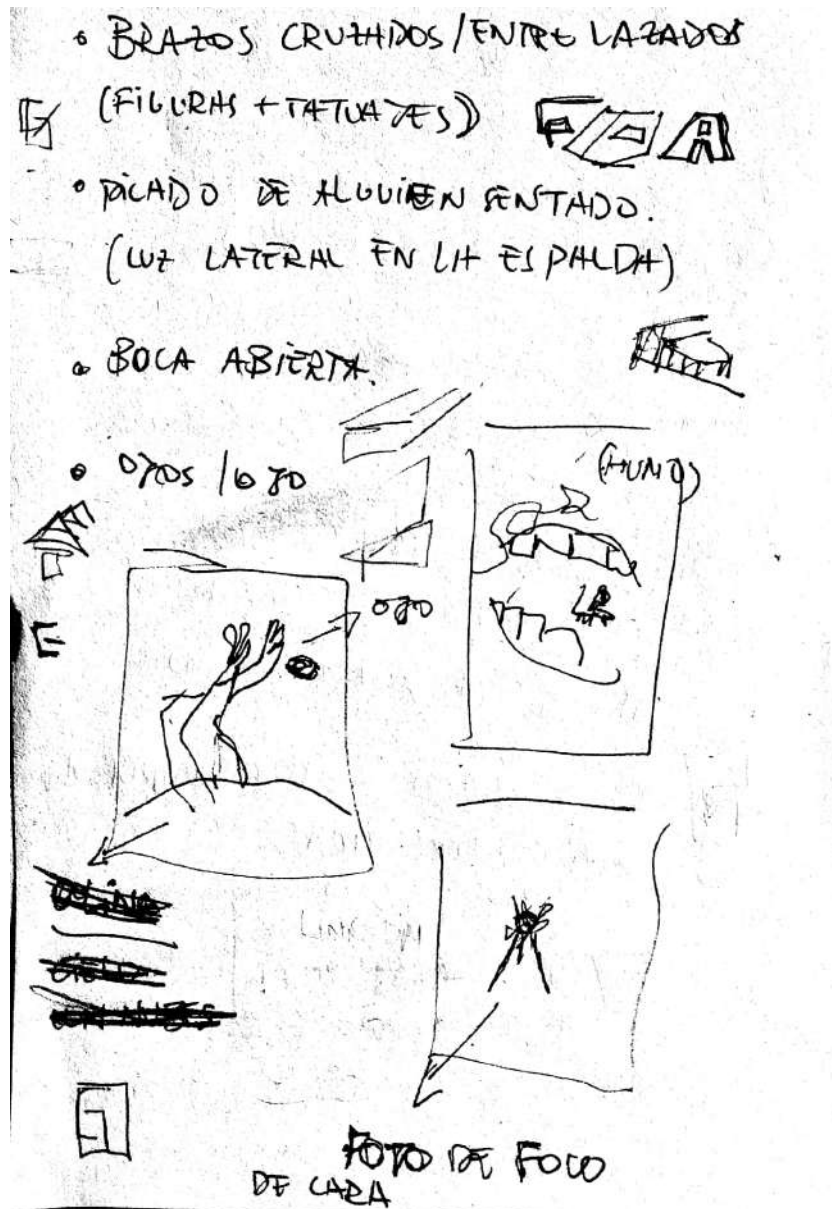 • BRAZOS CRUZADOS/ENTRELAZADOS
(FIGURAS + TATUAJES)
• PICADO DE ALGUIEN SENTADO.
(LUZ LATERAL EN LA ESPALDA)
• BOCA ABIERTA.
• OJOS / OJO
(HUMO)
OJO
COLINA
CIELO
CON NUBES
FOTO DE FOCO
DE CARA